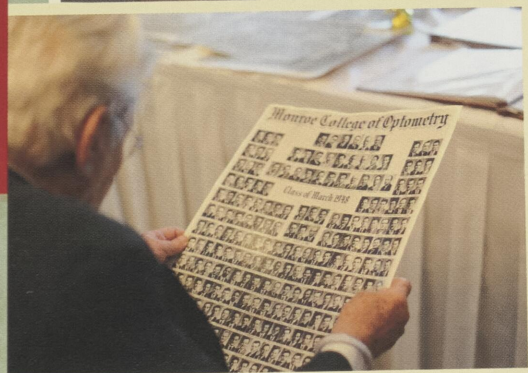 Monroe College of Optometry
Class of March 1948